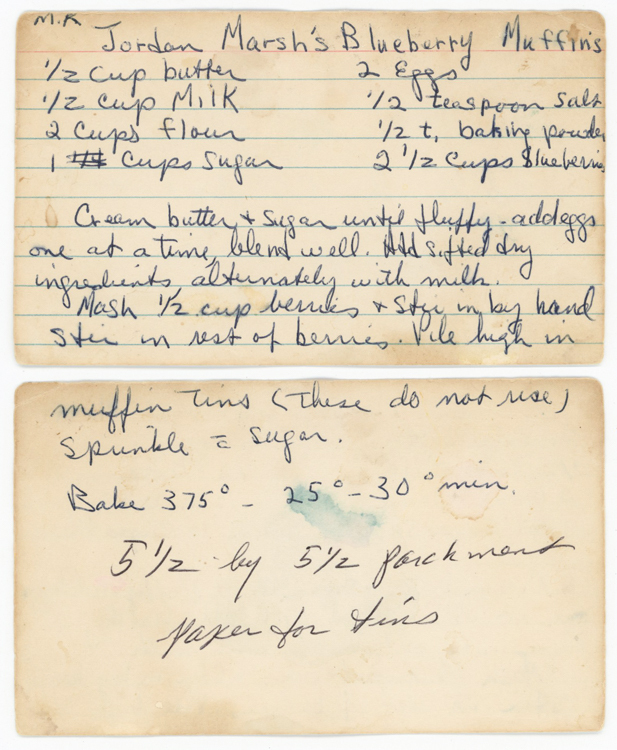 M.K
Jordan Marsh's Blueberry Muffins
1/2 cup butter 2 Eggs
1/2 cup Milk 1/2 teaspoon salt
2 cups flour 1/2 t. baking powder
1 cups sugar 2 1/2 cups blueberries
Cream butter + sugar until fluffy - add eggs
one at a time, blend well. Add sifted dry
ingredients alternately with milk.
Mash 1/2 cup berries + stir in by hand
Stir in rest of berries. Pile high in
muffin tins (these do not rise)
Sprinkle c̄ sugar.
Bake 375° - 25° - 30° min.
5 1/2 by 5 1/2 parchment
paper for tins